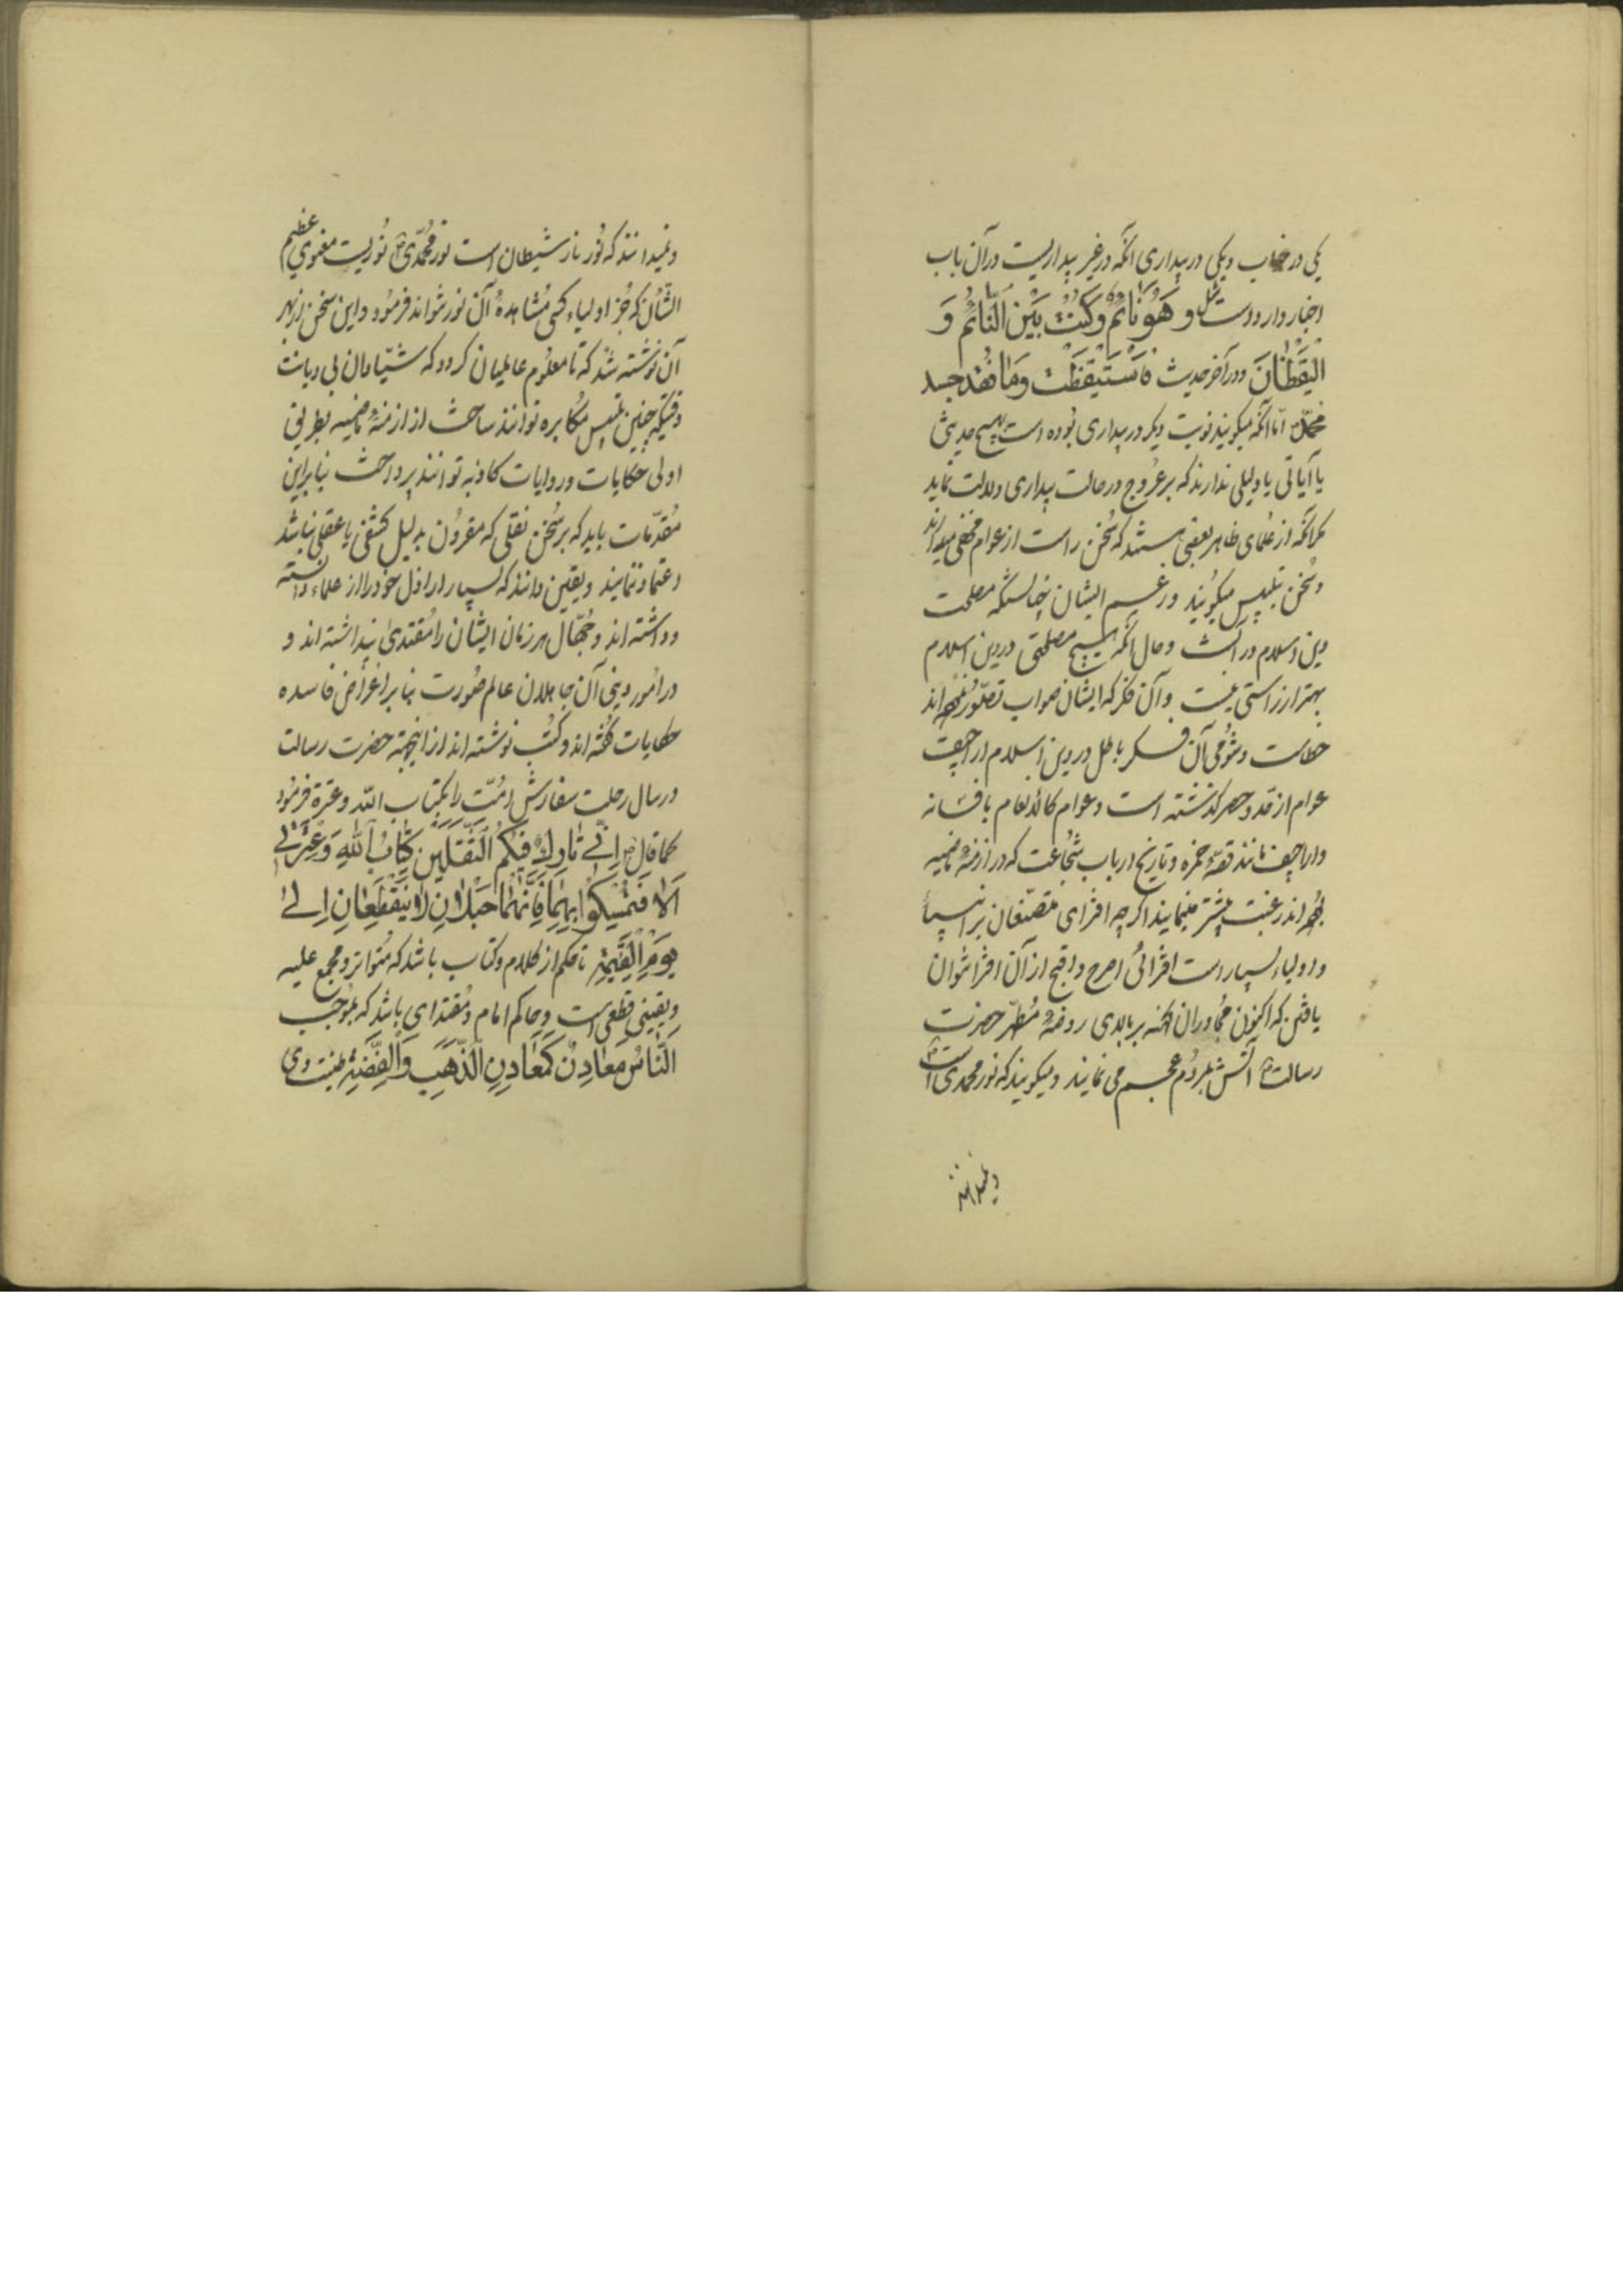 یکی در خواب و یکی در بیداری آنکه در غیر بیداریست در آن باب
اخبار وارد است مثل و هُوَ نَائمٌ وَکُنْتُ بَیْنَ النَّائمُ وَ
الْیَقَظْانَ و در آخر حدیث فَاسْتَیْقَظَتْ وَمٰا فُقِدَ جسد
محمّد امّا آنکه میکویند نوبت دیکر در بیداری بُوده است هیچ حدیثی
یا آیاتی یا دلیلی ندارند که بر عُروج در حالت بیداری دلالت نماید
مکر آنکه از عُلمای ظاهر بعضی هستند که سُخن راست از عوام مخفی میدارند
و سُخن بتلبیس میکویند و زعم ایشان چنانستکه مصلحت
دین اسلام در آنست و حال آنکه هیچ مصلحتی در دین اسلام
بهتر از راستی نیست و آن فکر که ایشان صواب تصوّر نموده اند
خطاست و شُومی آن فکر باطل در دین اسلام اراجیف
عوام از حد و حصر کذشته است و عوام کالانعام بافسانه
و اراجیف مانند قصّهٔ حمزه و تاریخ ارباب شجاعت که در ازمنهٔ ماضیه
بوده اند رغبت بیشتر مینمایند اکر چه افترای متصنّعان بر انبیا
و اولیاء بسیار است افترائی اصرح و اقبح از آن افترا نتوان
یافتن که اکنون مجُاوران مکّه بر بالای روضهٔ مُطهّر حضرت
رسالت ص آتش بمردُم عجم می نمایند و میکویند که نور محمدی است
و نمیدانند
و نمیدانند که نُور نار شیطان است نور محُمّدی ص نُوریست معنوی عظیم
الشّأن که جُز اولیاء کسی مُشاهدهٔ آن نور نتواند فرمُود و این سخن از بهر
آن نوشته شُد که تا معلُوم عالمیان کردد که شیّادان بی دیانت
وقتیکه چنین تلبیس مُکابره توانند ساخت از ازمنهٔ ماضیه بطریق
اولی حکایات و روایات کاذبه توانند پرداخت بنابراین
مُقدّمات باید که بر سُخن نقلی که مقرُون بدلیل کشفی یا عقلی نباشد
اعتماد ننمایند و یقین دانند که بسیار اراذل خود را از علماء دانسته
و داشته اند و جُهّال هر زمان ایشان را مُقتدیٰ پنداشته اند و
در امُور دینی آن جاهلان عالم صُورت بنابر اغراض فاسده
حکایات کفته اند و کتُب نوشته اند از اینجهته حضرت رسالت
در سال رحلت سفارش اُمّت را بکتاب اللّه و عترة فرمُود
کما قال ص اِنّی تٰارِكٌ فیٖکُمُ الثَّقَلَیْنِ کِتٰابُ اللّٰهِ وَ عِتْرَتٖی
اَلاٰ فَتَمَسَّکُوا بِهِمٰا فَاِنَّهُمٰا حَبْلاٰنِ لاٰ یَنْقَطِعٰانِ اِلیٰ
یَوْمِ الْقِیٰمَةِ تا حکم از کلام و کتاب باشد که مُتواتر و مجمع علیه
و یقینی قطعی است و حاکم امام و مُقتدای باشد که بموُجب
اَلنّٰاسُ مَعٰادِنٌ کَمَعٰادِنِ الذَّهَبِ وَالْفِضَّةِ طینت وی